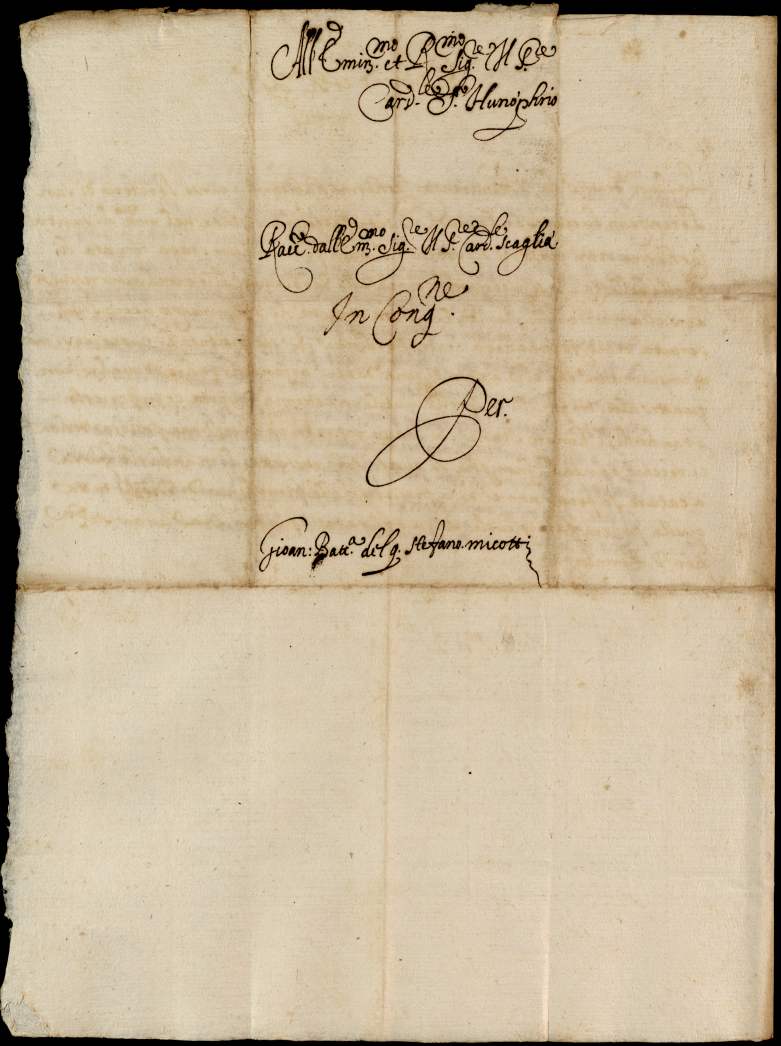 All' Emin.mo et R.mo Sig.re Il S.re
Card.le S.to Hunophrio
Racc. dall' Em.mo Sig.re Il S.re Card.le Scaglia
In Cong.ne
Per.
Gioan: Batt.a del q. Stefano micotti